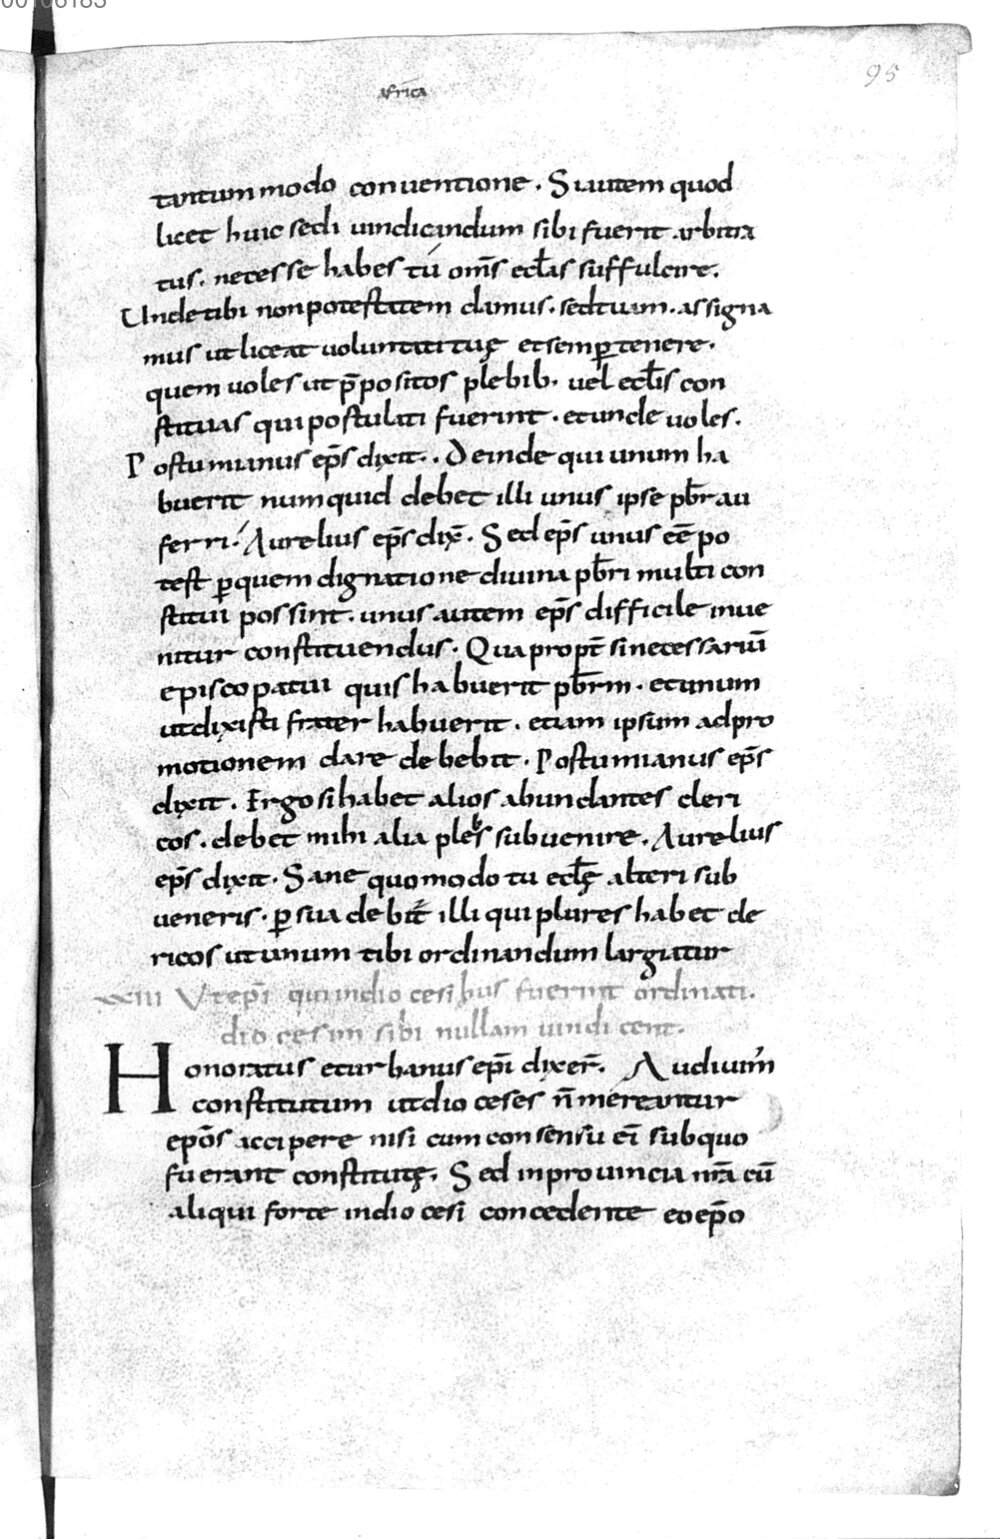 95
africa
tantummodo conuentione. Siautem quod
licet huic sedi uindicandum sibi fuerit arbitra
tus. necesse habes tú om̄s ecl̄as suffulcire.
Unde tibi non potestatem damus. sed tuam. assigna
mus ut liceat uoluntati tuę et semp̱ tenere.
quem uoles ut p̄positos plebib. uel ecl̄is con
stituas qui postulati fuerint. et unde uoles.
Postumianus ep̄s dixit.. Deinde qui unum ha
buerit numquid debet illi unus ipse pb̄r au
ferri. Aurelius ep̄s dix̄. Sed ep̄s unus eē po
test p̱quem dignatione diuina pb̄ri multi con
stitui possint. unus autem ep̄s difficile inue
nitur constituendus. Quapropt̄ si necessariū
episcopatui quis habuerit pb̄rm. et unum
ut dixisti frater habuerit. etiam ipsum ad pro
motionem dare debebit. Postumianus ep̄s
dixit. Ergo si habet alios abundantes cleri
cos. debet mihi alia plebs subuenire. Aurelius
ep̄s dixit. Sane quomodo tu ecl̄ę alteri sub
ueneris. p̱suadebit̄ illi qui plures habet cle
ricos ut unum tibi ordinandum largiatur
Ut ep̄i qui in diocesibus fuerint ordinati.
diocesim sibi nullam uindicent.
Honoratus et urbanus ep̄i dixer̄. Audiuim̄
constitutum ut dioceses n̄ mereantur
ep̄os accipere nisi cum consensu ei̅ sub quo
fuerant constitutę. Sed in prouincia nr̄a cū
aliqui forte in diocesi concedente eo ep̄o